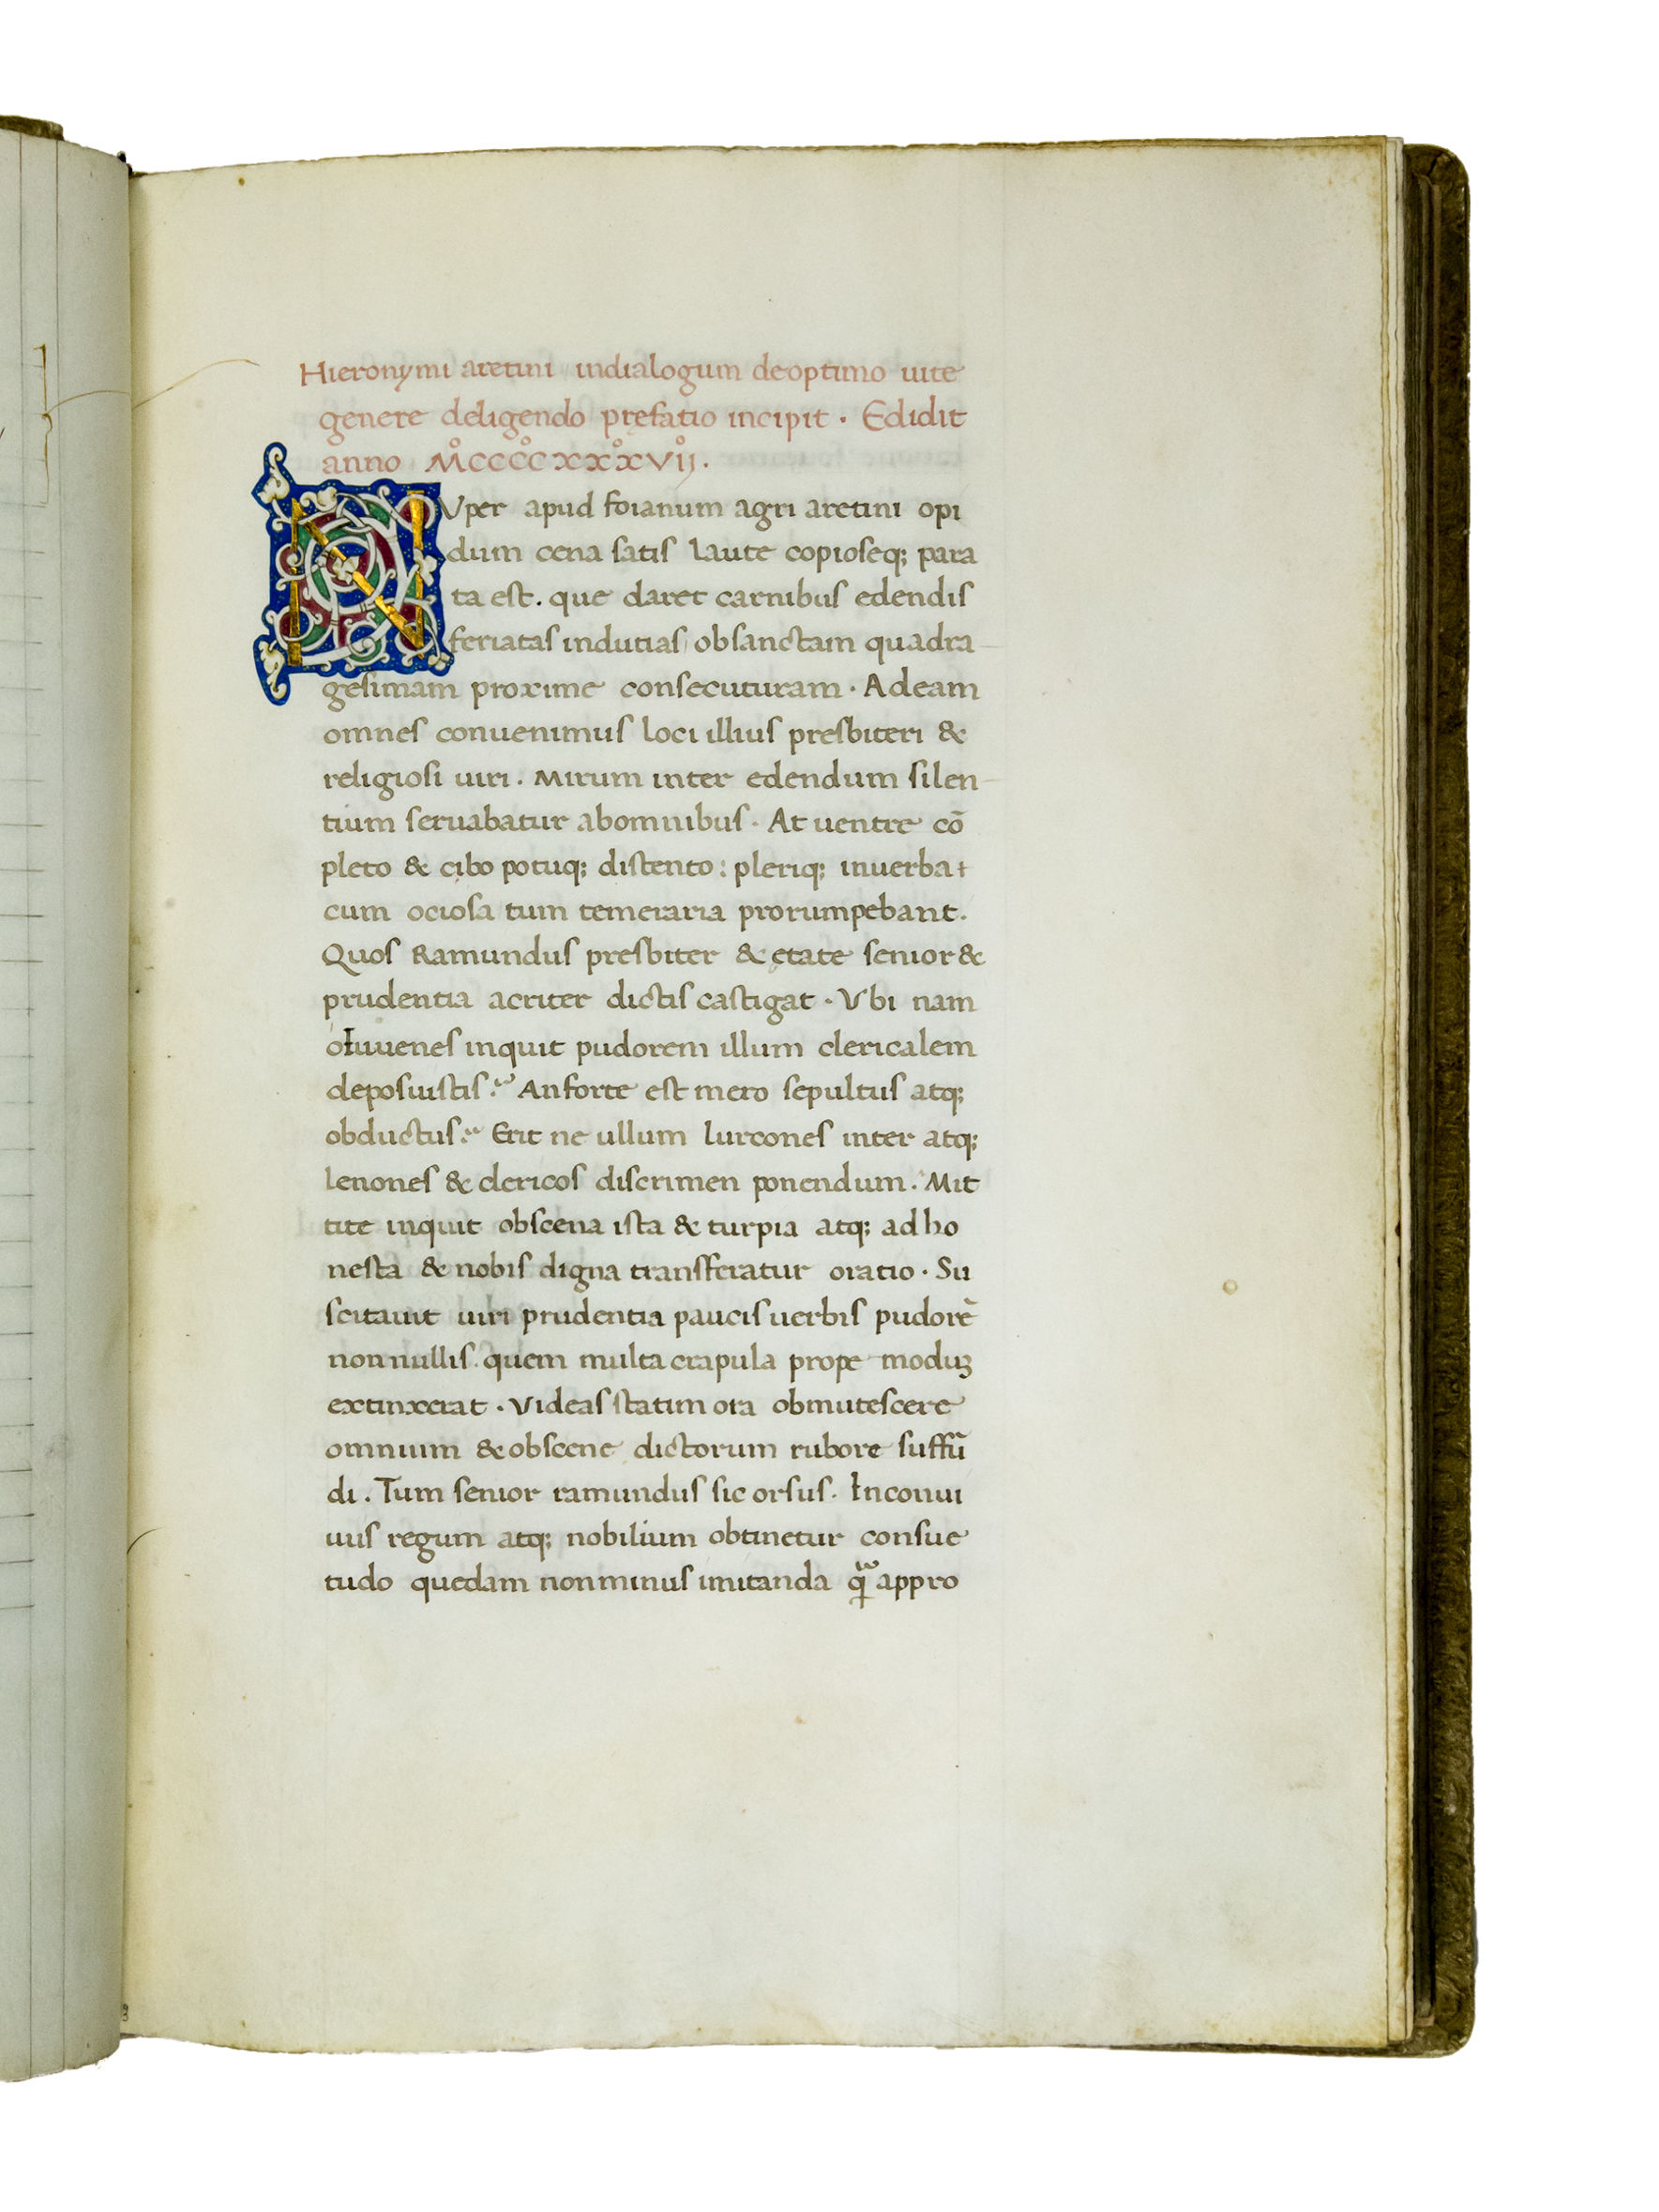 Hieronymi aretini indialogum deoptimo uite
genere deligendo prefatio incipit · Edidit
anno M°CCCC°XXX°VII°.
NVper apud foianum agri aretini opi
dum cena satis laute copioseq; para
ta est. que daret carnibus edendis
feriatas indutias obsanctam quadra-
gesimam proxime consecuturam · Adeam
omnes conuenimus loci illius presbiteri &
religiosi uiri · Mirum inter edendum silen-
tium seruabatur abomnibus · At uentre cō
pleto & cibo potuq; distento: pleriq; inuerba
cum ociosa tum temeraria prorumpebant.
Quos Ramundus presbiter & ętate senior &
prudentia acriter dictis castigat · Vbi nam
oIuuenes inquit pudorem illum clericalem
deposuistis? An forte est mero sepultus atq;
obductus? Erit ne ullum lurcones inter atq;
lenones & clericos discrimen ponendum. Mit
tite inquit obscena ista & turpia atq; ad ho
nesta & nobis digna transferatur oratio · Su
scitauit uiri prudentia paucis uerbis pudorē
nonnullis. quem multa crapula prope moduꝫ
extinxerat · Videas statim ora obmutescere
omnium & obscene dictorum rubore suffū
di. Tum senior ramundus sic orsus. Inconui
uiis regum atq; nobilium obtinetur consue
tudo quedam nonminus imitanda q̃ appro